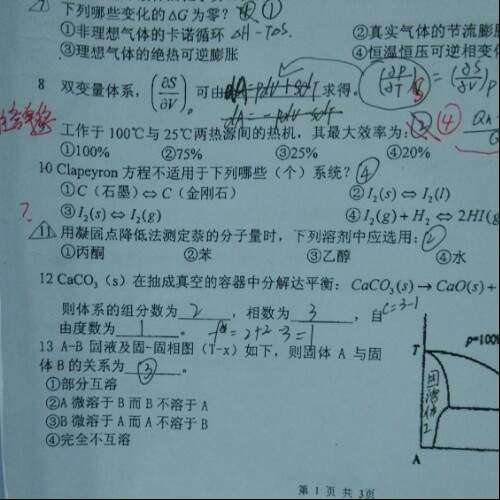 下列哪些变化的ΔG为零? ①
①非理想气体的卡诺循环 ΔH-TΔS ②真实气体的节流膨胀
③理想气体的绝热可逆膨胀 ④恒温恒压可逆相变
8 双变量体系,(∂S/∂V)P 可由 求得。 (∂P/∂T)S = (∂S/∂V)P
工作于100℃与25℃两热源间的热机,其最大效率为: ④
①100% ②75% ③25% ④20%
10 Clapeyron 方程不适用于下列哪些(个)系统? ④
①C(石墨)⇔C(金刚石) ②I₂(s)⇔I₂(l)
? ③I₂(s)⇔I₂(g) ④I₂(g)+H₂⇔2HI(g
11 用凝固点降低法测定萘的分子量时,下列溶剂中应选用: ②
①丙酮 ②苯 ③乙醇 ④水
12 CaCO₃(s)在抽成真空的容器中分解达平衡: CaCO₃(s)→CaO(s)+
则体系的组分数为 2 ,相数为 3 ,自 C=3-1
由度数为 1 。 f*=2+2-3=1
13 A-B 固液及固-固相图(T-x)如下,则固体 A 与固
体 B 的关系为 ③ 。
①部分互溶
②A 微溶于 B 而 B 不溶于 A
③B 微溶于 A 而 A 不溶于 B
④完全不互溶
P=100
T
固溶体
2
A
第 1 页 共 3页